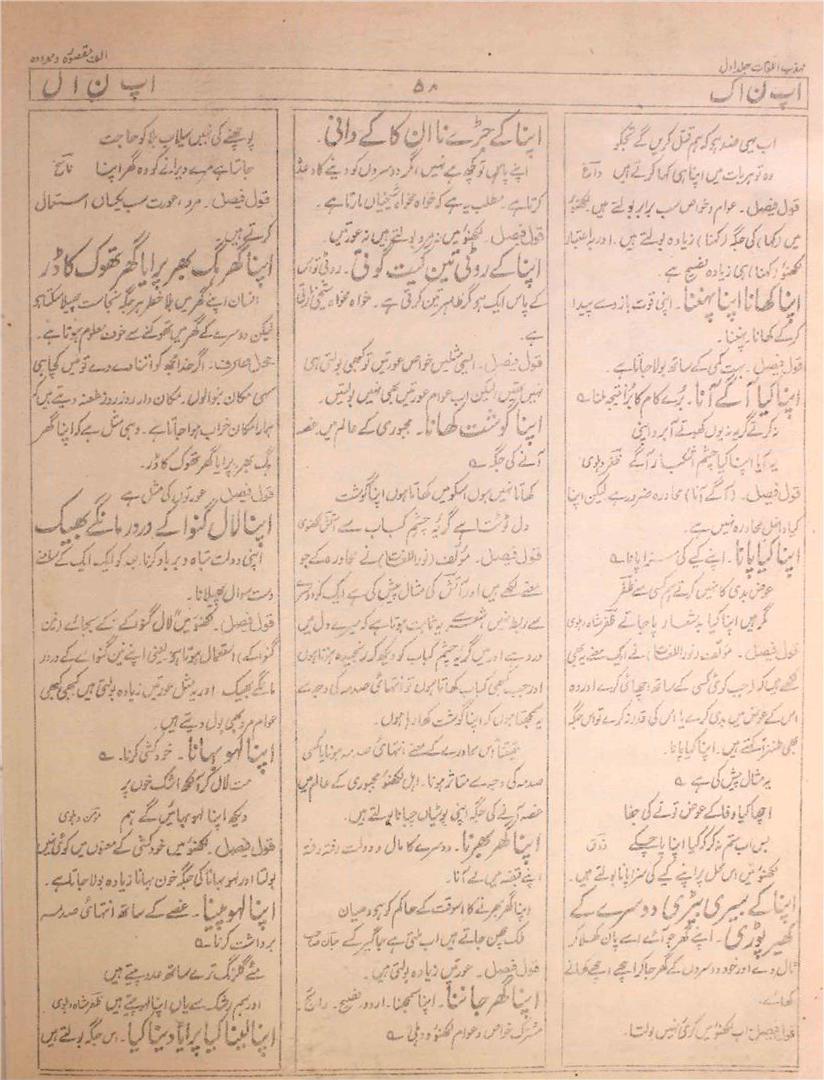 مہذب اللغات جلد اول
الف مقصورہ و ممدودہ
اپ ن اک
۵۸
اپ ن ال
اب یہی ضد ہو کہ ہم قتل کریں گے تجھکو
وہ تو ہر بات میں اپنا ہی کہا کرتے ہیں داغ
قول فیصل۔ عوام و خواص سب برابر بولتے ہیں لکھنؤ
میں (کہا) کی جگہ (کہنا) زیادہ بولتے ہیں۔ اور باعتبار
لکھنؤ (کہنا) ہی زیادہ فصیح ہے۔
اپنا کھانا اپنا پہننا۔ اپنی قوت بازو سے پیدا
کرکے کھانا پہننا۔
قول فیصل۔ بہت کمی کے ساتھ بولا جاتا ہے۔
اپنا کیا آگے آنا۔ برے کام کا برا نتیجہ ملنا ؎
نہ کرتے گریہ نہ یوں کھوتے آبرو اپنی
یہ آیا اپنا کیا چشم اشکبار آگے ظفر دہلوی
قول فیصل۔ (آگے آنا) محاورہ ضرور ہے لیکن اپنا
کیا داخل محاورہ نہیں ہے۔
اپنا کیا پانا۔ اپنے کیے کی سزا پانا ؎
عوض بدی کا نہیں کرتے ہم کسی سے ظفر
مگر ہیں اپنا کیا پا جاتے ظفر شاہ دہلوی
قول فیصل۔ مؤلف (نور اللغات) نے ایک معنے یہ بھی
لکھے ہیں کہ (جب کوئی کسی کے ساتھ اچھائی کرے اور وہ
اس کے عوض میں بدی کرے یا اس کی قدر نہ کرے تو اس جگہ
بھی طنزاً کہتے ہیں۔ اپنا کیا پانا۔
یہ مثال پیش کی ہے ؎
اچھا کیا وفا کے عوض تونے کی جفا
بس اب ستم نہ کر کہ کیا اپنا پا چکے ذوق
لکھنؤ میں اس محل پر اپنے کیے کی سزا پانا بولتے ہیں۔
اپنا کے بیری بٹیری دوسرے کے
کھیر پوڑی۔ اپنے گھر جو آئے اسے پان کھلا کر
ٹال دے اور خود دوسروں کے گھر جا کر اچھے اچھے کھانے
کھائے۔
قول فیصل: اب لکھنؤ میں کوئی نہیں بولتا۔
اپنا کے جڑے نا ان کا کے دانی۔
اپنے پاس تو کچھ ہے نہیں اگر دوسروں کو دینے کا وعدہ
کرتا ہے۔ مطلب یہ ہے کہ خواہ مخواہ شیخیاں مارتا ہے۔
قول فیصل۔ لکھنؤ میں نہ مرد بولتے ہیں نہ عورتیں۔
اپنا کے روٹی تین گیت گوئی۔ روٹی تو اس
کے پاس ایک ہو مگر ظاہر تین کرتی ہے۔ خواہ مخواہ شیخی مارتی
ہے۔
قول فیصل۔ ایسی مثلیں خواص عورتیں تو کبھی بولتی ہی
نہیں تھیں لیکن اب عوام عورتیں بھی نہیں بولتیں۔
اپنا گوشت کھانا۔ مجبوری کے عالم میں غصہ
آنے کی جگہ ؎
کھاتا نہیں ہوں اسکو میں کھاتا ہوں اپنا گوشت
دل ٹوٹتا ہے گریہ چشم کباب سے آتش لکھنوی
قول فیصل۔ مؤلف (نور اللغات) نے محاورہ کے جو
معنے لکھے ہیں اور آتش کی مثال پیش کی ہے ایک کو دوسرے
سے ربط نہیں شعر سے یہ ثابت ہوتا ہے کہ میرے دل میں
درد ہے اور میں گریہ چشم کباب کو دیکھ کر رنجیدہ ہوتا ہوں
اور جب کبھی کباب کھاتا ہوں تو انتہائی صدمہ کی وجہ سے
یہ سمجھتا ہوں کہ اپنا گوشت کھا رہا ہوں۔
حقیقتاً اس محاورے کے معنے انتہائی صدمہ ہونا یا کسی
صدمہ کی وجہ سے متاثر ہونا۔ اہل لکھنؤ مجبوری کے عالم میں
غصہ آنے کی جگہ اپنی بوٹیاں چبانا بولتے ہیں۔
اپنا گھر بھرنا۔ دوسرے کا مال و دولت رفتہ رفتہ
اپنے قبضہ میں لے آنا۔
اپنا گھر بھرنے کا اسوقت کے حاکم کو ہے دھیان
ملک چھن جاتے ہیں اب ملتی ہے جاگیر کسے جان صاحب
قول فیصل۔ عورتیں زیادہ بولتی ہیں۔
اپنا گھر جاننا۔ اپنا سمجھنا۔ اردو۔ فصیح۔ رائج۔
مشترک خواص و عوام لکھنؤ و دہلی ؎
پوچھنے کی نہیں سیلاب بلا کو حاجت
جانتا ہے مرے ویرانے کو وہ گھر اپنا ناسخ
قول فیصل۔ مرد، عورت سب یکساں استعمال
کرتے ہیں۔
اپنا گھر ہگ بھر پرایا گھر تھوک کا ڈر
انسان اپنے گھر میں بلا خطر ہر جگہ نجاست پھیلا سکتا ہو
لیکن دوسرے کے گھر میں تھوکنے سے خوف معلوم ہوتا ہے۔
محل صرف: اگر خدا مجھ کو اتنا دے دے تو میں کچا ہی
سہی مکان بنوا لوں۔ مکان دار روز روز طعنہ دیتے ہیں کہ
ہمارا مکان خراب ہوا جاتا ہے۔ وہی مثل ہے کہ اپنا گھر
ہگ بھر، پرایا گھر تھوک کا ڈر۔
قول فیصل۔ عورتوں کی مثل ہے
اپنا لال گنوا کے در در مانگے بھیک
اپنی دولت تباہ و برباد کرنا۔ بعد کو ایک ایک کے سامنے
دست سوال پھیلانا۔
قول فیصل۔ لکھنؤ میں "لال گنوا کے" کے بجائے (نین
گنوا کے) استعمال ہوتا ہو یعنی اپنے نین گنوا کے در در
مانگے بھیک۔ اور یہ مثل عورتیں زیادہ بولتی ہیں کبھی کبھی
عوام مرد بھی بول دیتے ہیں۔
اپنا لہو بہانا۔ خودکشی کرنا۔ ؎
مت لال کر آنکھ اشک خوں پر
دیکھ اپنا لہو بہائیں گے ہم مومن دہلوی
قول فیصل۔ لکھنؤ میں خودکشی کے معنوں میں کوئی نہیں
بولتا اور لہو بہانا کی جگہ خون بہانا زیادہ بولا جاتا ہے۔
اپنا لہو پینا۔ غصے کے ساتھ انتہائی صدمہ
برداشت کرنا ؎
مئے گلرنگ ترے ساتھ عدو پیتے ہیں
اور ہم رشک سے یاں اپنا لہو پیتے ہیں ظفر شاہ دہلوی
اپنا لینا کیا پرایا دینا کیا۔ اس جگہ بولتے ہیں